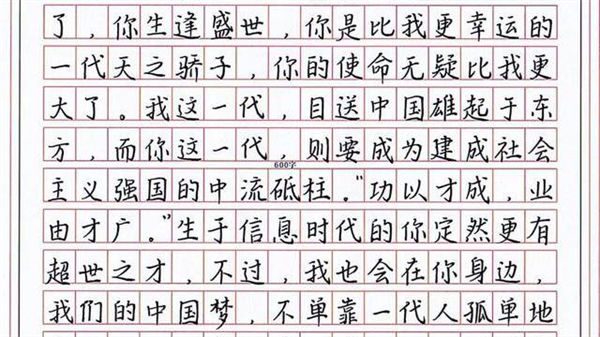 了，你生逢盛世，你是比我更幸运的
一代天之骄子，你的使命无疑比我更
大了。我这一代，目送中国雄起于东
方，而你这一代，则要成为建成社会
600字
主义强国的中流砥柱。“功以才成，业
由才广。”生于信息时代的你定然更有
超世之才，不过，我也会在你身边，
我们的中国梦，不单靠一代人孤单地